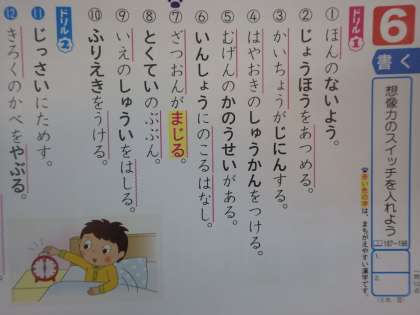 6
書く
想像力のスイッチを入れよう
187~198
1.
2.
赤い色の字は、まちがえやすい漢字です。
ドリル1
① ほんのないよう。
② じょうほうをあつめる。
③ かいちょうがじにんする。
④ はやおきのしゅうかんをつける。
⑤ むげんのかのうせいがある。
⑥ いんしょうにのこるはなし。
⑦ ざつおんがまじる。
⑧ とくていのぶぶん。
⑨ いえのしゅういをはしる。
⑩ ふりえきをうける。
ドリル2
⑪ じっさいにためす。
⑫ きろくのかべをやぶる。